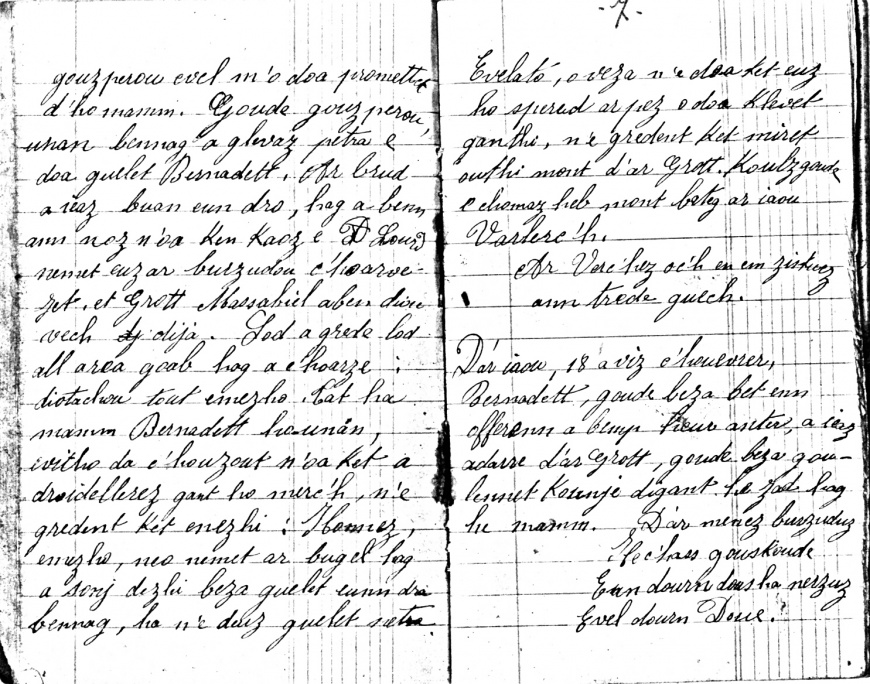 gouzperou evel m'o doa promettet
d'ho mamm. Goude gouzperou,
unan bennag a glevaz petra e
doa guelet Bernadett. Ar brud
a ieaz buan eun dro, hag a benn
ann noz n'oa ken kaoz e Lourd
nemet euz ar burzudou c'hoarve-
zet, et Grott Massabiel aben diou
vech dija. Lod a grede lod
all area goab hag a c'hoarze :
diotachou tout emezho. Tat ha
mamm Bernadett ho-unan,
evitho da c'houzout n'oa ket a
droidellerez gant ho merc'h, n'e
gredent ket enezhi : Honnez,
emezho, neo nemet ar bugel hag
a sonj dezhi beza guelet eunn dra
bennag, ha n'e deuz guelet netra
-7-
Evelató, o veza n'e doa ket euz
ho spered ar pez o doa klevet
ganthi, n'e gredent ket miret
outhi mont d'ar Grott. Koulzgoude
e chomaz heb mont beteg ar iaou
Varlerc'h.
Ar Verc'hez oc'h en em ziskuez
ann trede guech.
D'ar iaou, 18 a viz c'houevrer,
Bernadett, goude beza bet enn
offerenn a bemp heur anter, a ieaz
adarre d'ar Grott, goude beza gou-
lennet kounje digant he zad hag
he mamm. D'ar menez burzuduz
He c'hass gouskoude
Eun dourn dous ha nerzuz
Evel dourn Doue.